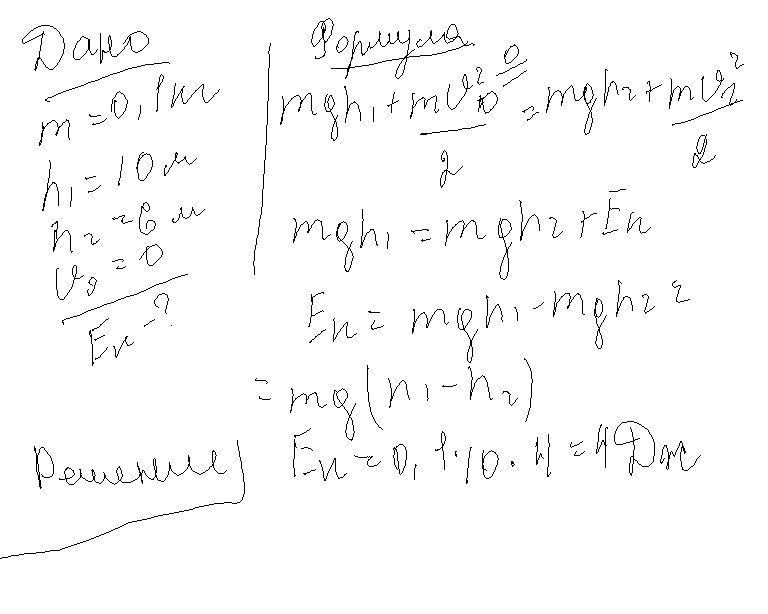 Дано
m = 0,1 кг
h₁ = 10 м
h₂ = 6 м
v₀ = 0
Eк - ?
Формула
mgh₁ + mv₀²/2 = mgh₂ + mv₂²/2
0
mgh₁ = mgh₂ + Eк
Eк = mgh₁ - mgh₂ =
= mg(h₁ - h₂)
Решение
Eк = 0,1·10·4 = 4 Дж